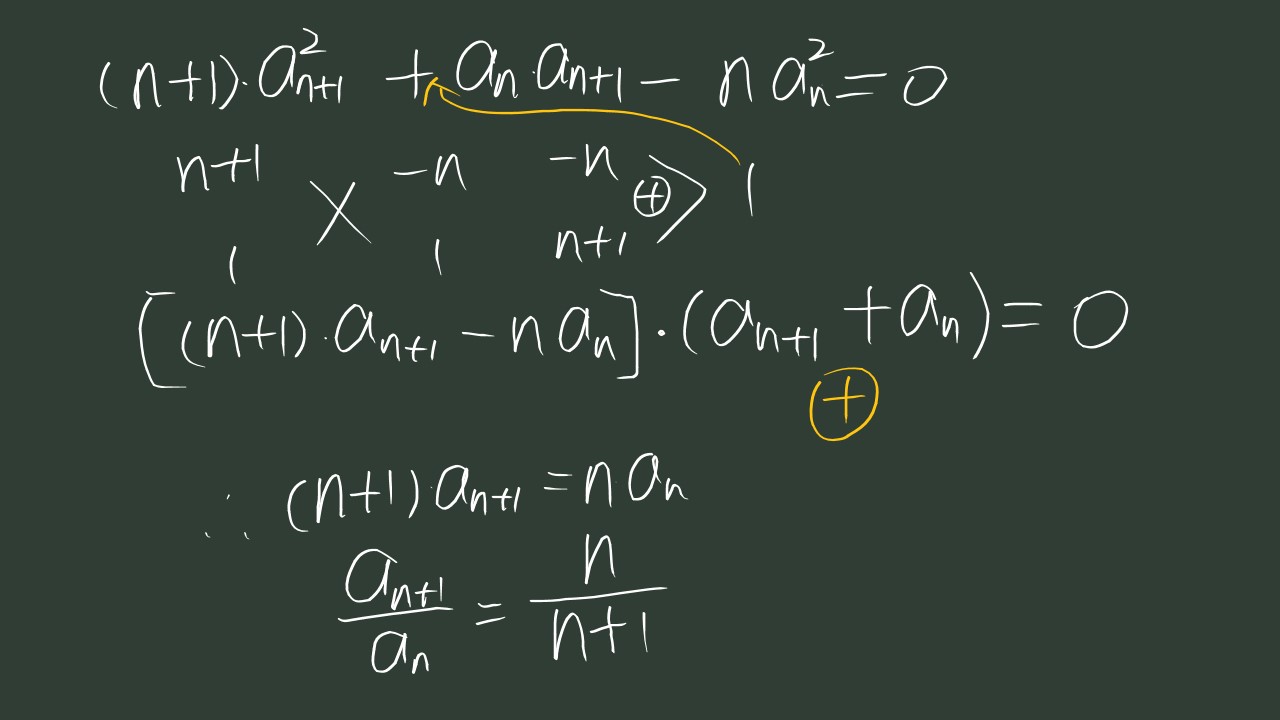 (n+1)·a²ₙ₊₁ + aₙ·aₙ₊₁ − n a²ₙ = 0
n+1 −n −n
⊕ 1
1 1 n+1
[(n+1)·aₙ₊₁ − n aₙ]·(aₙ₊₁ + aₙ) = 0
⊕
∴ (n+1)·aₙ₊₁ = n aₙ
aₙ₊₁/aₙ = n/(n+1)